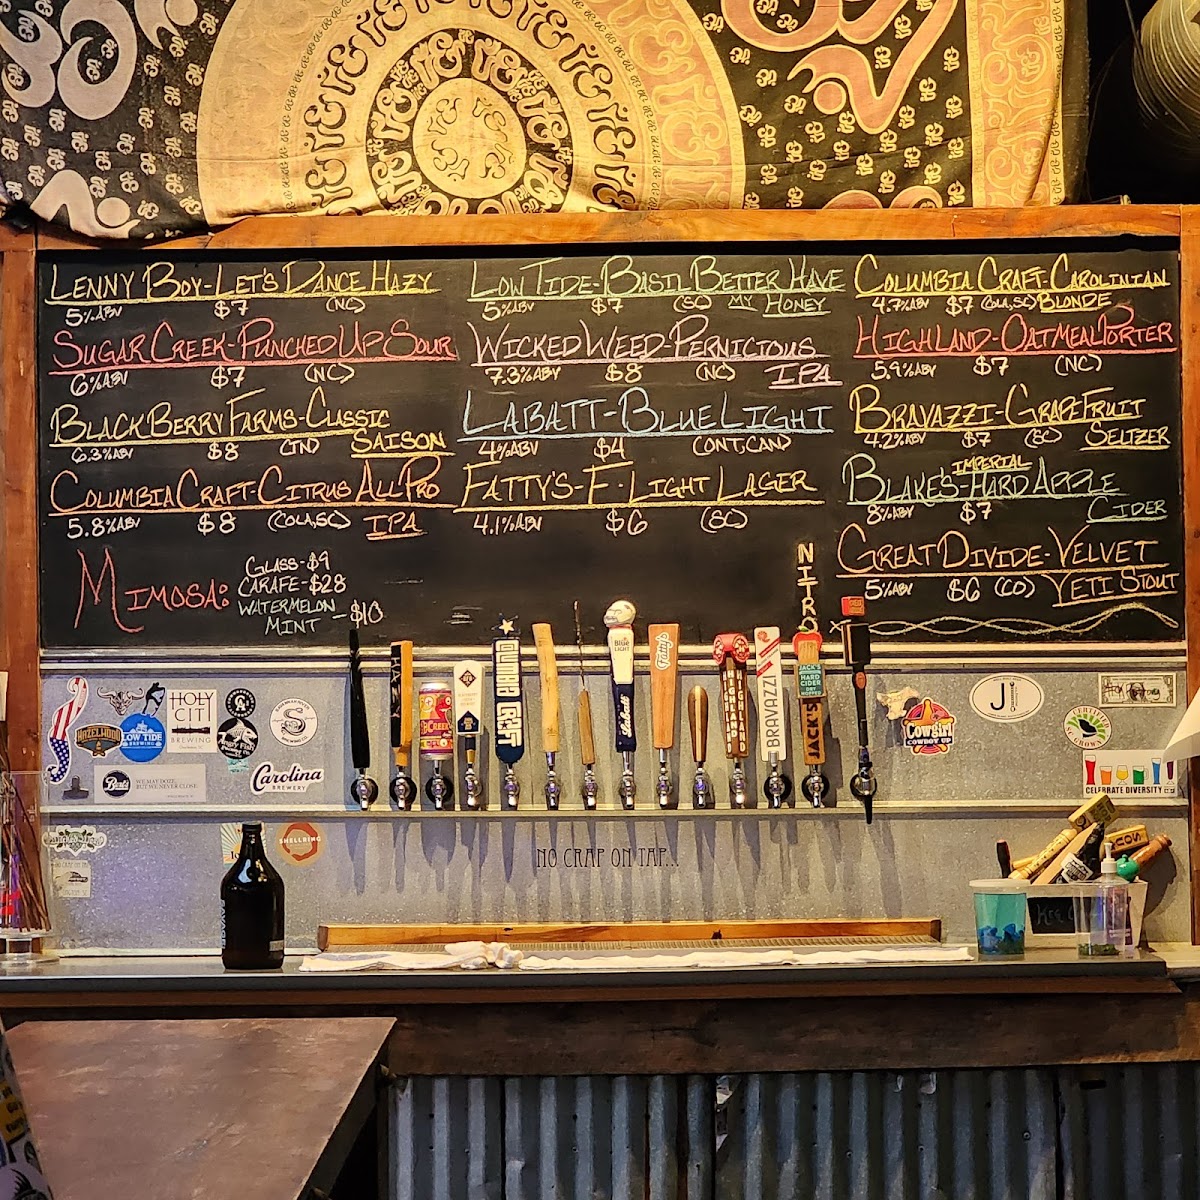 LENNY BOY-LET'S DANCE HAZY
5%ABV $7 (NC)
SUGAR CREEK-PUNCHED UP SOUR
6%ABV $7 (NC)
BLACKBERRY FARMS-CLASSIC
SAISON
6.3%ABV $8 (TN)
COLUMBIA CRAFT-CITRUS ALL PRO
5.8%ABV $8 (COLA,SC) IPA
MIMOSA:
GLASS-$9
CARAFE-$28
WATERMELON
MINT -$10
LOW TIDE-BASIL BETTER HAVE
5%ABV $7 (SC) MY HONEY
WICKED WEED-PERNICIOUS
7.3%ABV $8 (NC) IPA
LABATT-BLUE LIGHT
4%ABV $4 (ONT,CAN)
FATTY'S-F-LIGHT LAGER
4.1%ABV $6 (SC)
COLUMBIA CRAFT-CAROLINIAN
4.7%ABV $7 (COLA,SC) BLONDE
HIGHLAND-OATMEAL PORTER
5.9%ABV $7 (NC)
BRAVAZZI-GRAPEFRUIT
4.2%ABV $7 (SC) SELTZER
IMPERIAL
BLAKE'S-HARD APPLE
8%ABV $7 CIDER
NITRO
GREAT DIVIDE-VELVET
5%ABV $6 (CO) YETI STOUT
HAZY
Blue
LIGHT
Labatt
Fatty's
HIGHLAND
BRAVAZZI
JACK'S
HARD
CIDER
DRY
HOPPED
JACK'S
HAZELWOOD
LOW TIDE
BREWING
HOLY
CITY
BREWING
Angry Fish
Brewing Co.
WE MAY DOZE,
BUT WE NEVER CLOSE.
Carolina
BREWERY
Cowgirl
COWBOY UP
J
CERTIFIED
SC GROWN
CELEBRATE DIVERSITY
SHELLRING
NO CRAP ON TAP...